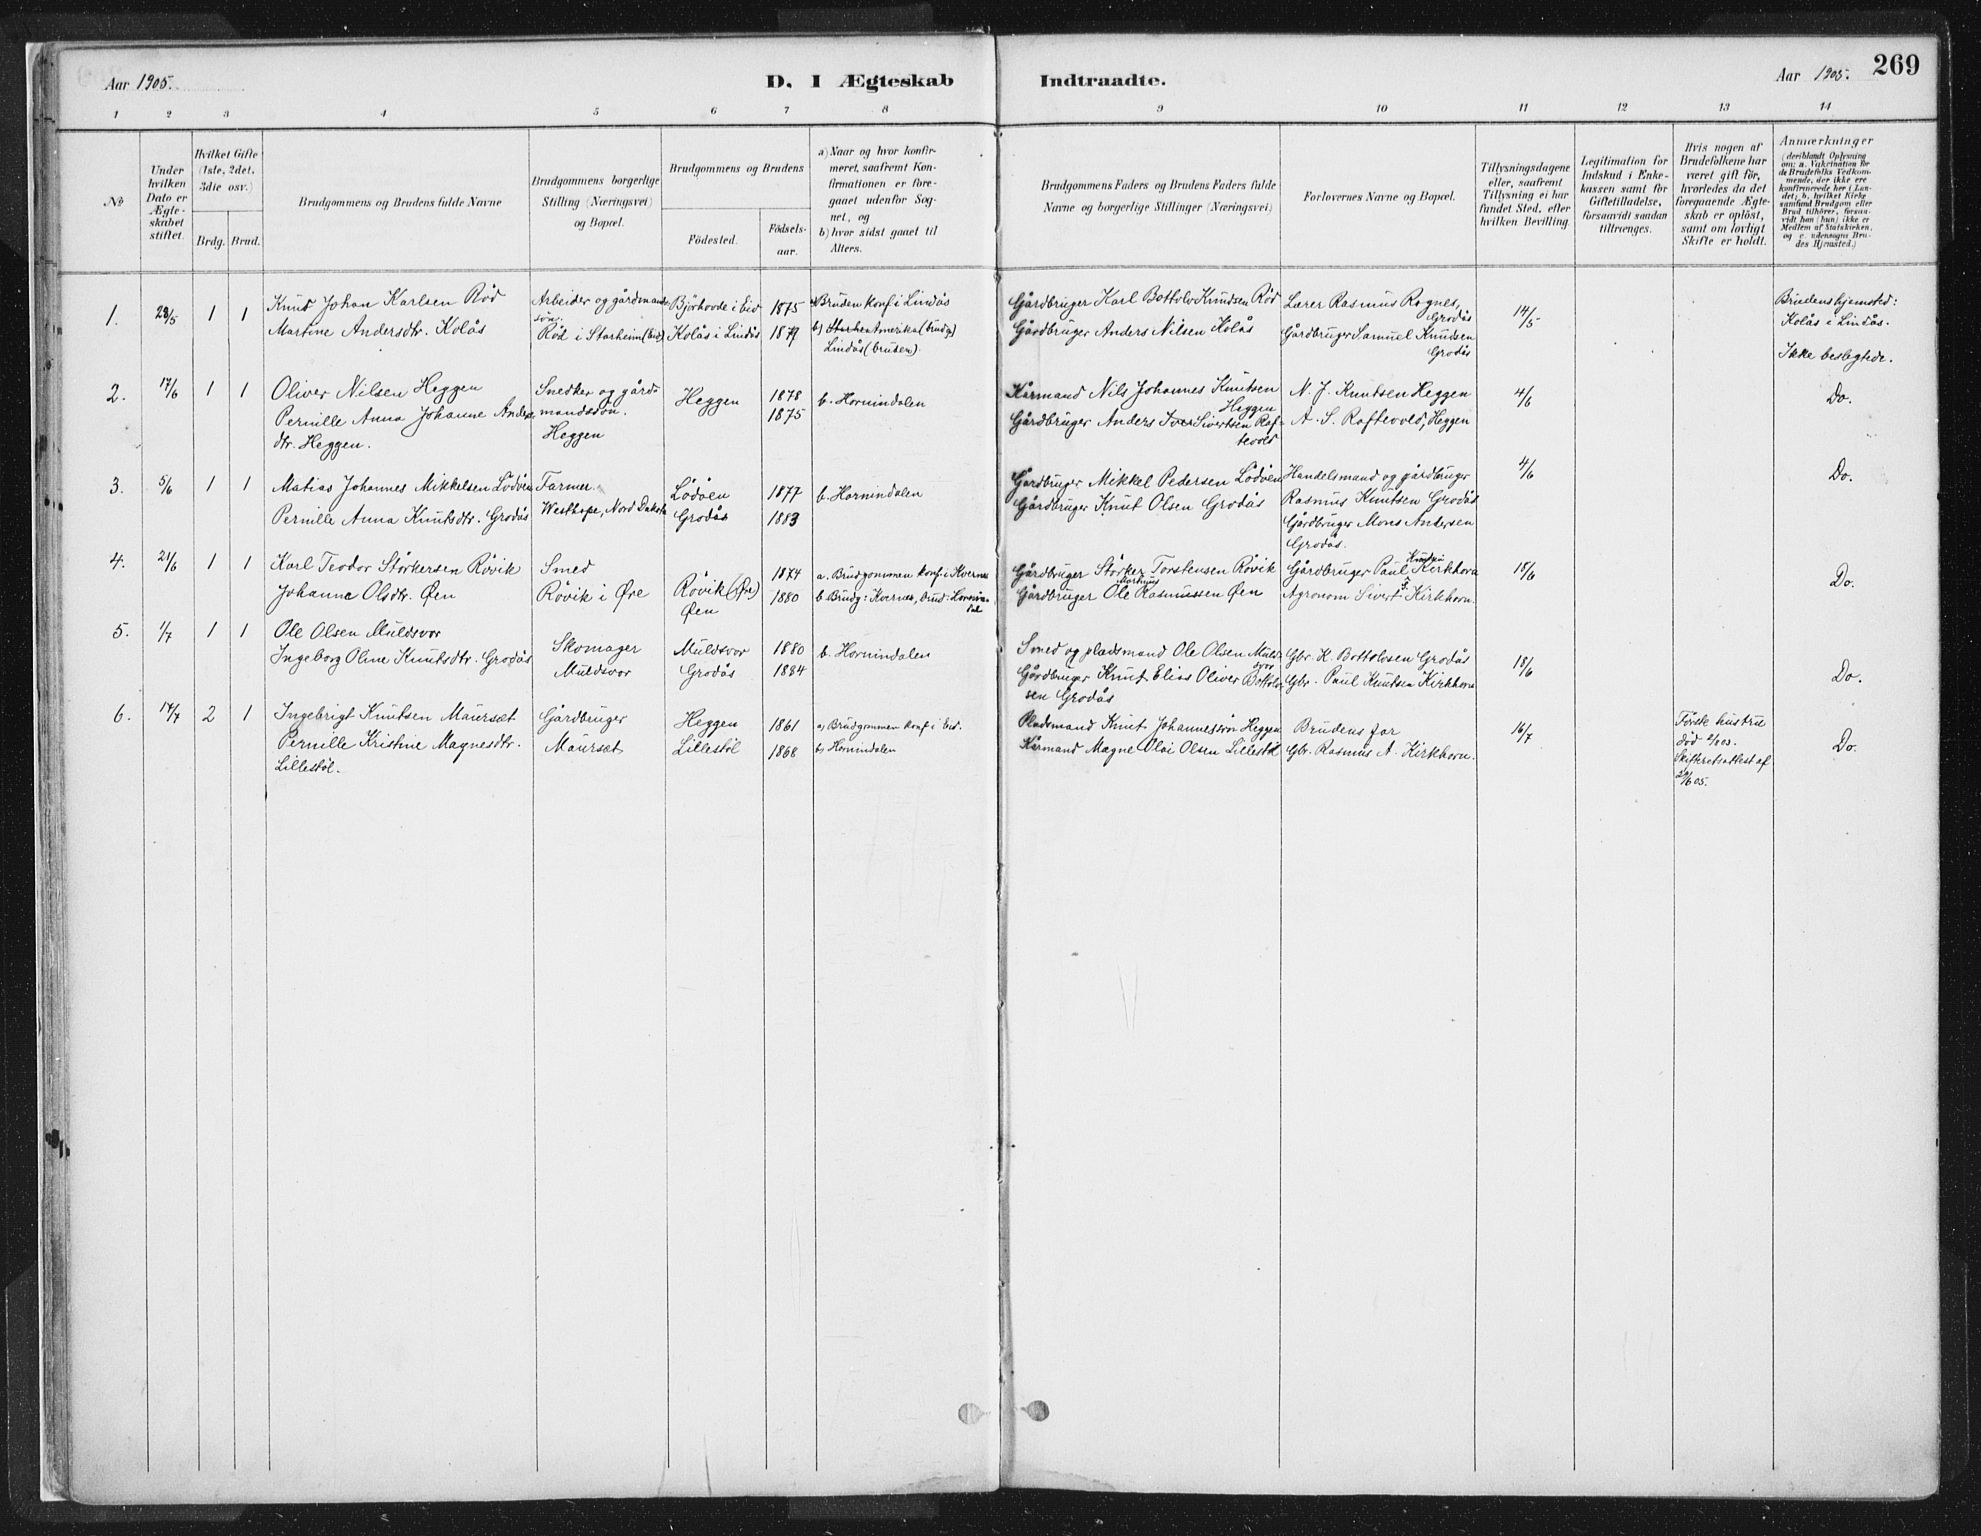 Aar 1905.
D. I Ægteskab
Indtraadte.
Aar 1905.
269
1 2 3 4 5 6 7 8 9 10 11 12 13 14
No
Under hvilken Dato er Ægteskabet stiftet.
Hvilket Gifte (1ste, 2det, 3die osv.)
Brdg.
Brud.
Brudgommens og Brudens fulde Navne
Brudgommens borgerlige Stilling (Næringsvei) og Bopæl.
Brudgommens og Brudens
Fødested.
Fødselsaar.
a) Naar og hvor konfirmeret, saafremt Konfirmationen er foregaaet udenfor Sognet, og
b) hvor sidst gaaet til Alters.
Brudgommens Faders og Brudens Faders fulde Navne og borgerlige Stillinger (Næringsvei)
Forlovernes Navne og Bopæl.
Tillysningsdagene eller, saafremt Tillysning ei har fundet Sted, efter hvilken Bevilling.
Legitimation for Indskud i Enkekassen samt for Giftetilladelse, forsaavidt saadan tiltrænges.
Hvis nogen af Brudefolkene har været gift før, hvorledes da det foregaaende Ægteskab er opløst, samt om lovligt Skifte er holdt.
Anmærkninger
(deriblandt Oplysning om: a. Vakcination for de Brudefolks Vedkommende, der ikke ere konfirmerede her i Landet; b. hvilket Kirkesamfund Brudgom eller Brud tilhører, forsaavidt han (hun) ikke er Medlem af Statskirken, og c. udensogns Brudes Hjemsted.)
1.
28/5
1 1
Knud Johan Karlsen Rød
Martine Andersdtr. Kolås
Arbeider og gårdmands
søn.
Rød i Starheim (Eid)
Bjørhovde i Eid
Kolås i Lindås
1875
1879
a) Bruden konf. i Lindås
b) Amerika (brudg.)
Lindås (bruden).
Gårdbruger Karl Bottolv Knudsen Rød
Gårdbruger Anders Nilsen Kolås
Lærer Rasmus Rognes,
Grodås
Gårdbruger Samuel Knudsen
Grodås
14/5
Brudens hjemsted:
Kolås i Lindås.
Ikke beslegtede.
2.
17/6
1 1
Oliver Nilsen Heggen
Pernille Anna Johanne Anders
dtr. Heggen.
Snedker og gård
mandssøn.
Heggen
Heggen
1878
1875
b. Hornindalen
Kårmand Nils Johannes Knutsen
Heggen
Gårdbruger Anders Iver Sivertsen Raf
tevold
N. J. Knutsen Heggen
A. S. Raftevold, Heggen
4/6
Do.
3.
5/6
1 1
Matias Johannes Mikkelsen Lødøen
Pernille Anna Knutsdtr. Grodås
Farmer.
Westhope, Nord Dakota
Lødøen
Grodås
1877
1883
b. Hornindalen
Gårdbruger Mikkel Pedersen Lødøen
Gårdbruger Knut Olsen Grodås
Handelsmand og gårdbruger
Rasmus Knutsen Grodås
Gårdbruger Mons Andersen
Grodås.
4/6
Do.
4.
21/6
1 1
Karl Teodor Størkersen Røvik
Johanna Olsdtr. Øen
Smed
Røvik i Øre
Røvik (Øre)
Øen
1874
1880
a. Brudgommen konf. i Kvernes
b. Brudg: Kvernes, brud: Hornin
dal
Gårdbruger Størker Torstensen Røvik
Gårdbruger Ole Markus Rasmussen Øen
Gårdbruger Paul Knutsen Kirkhorn
Agronom Sivert P. Kirkhorn.
18/6
Do.
5.
1/7
1 1
Ole Olsen Muldsvor
Ingeborg Oline Knutsdtr. Grodås
Skomager
Muldsvor
Muldsvor
Grodås
1880
1884
b. Hornindalen
Smed og pladsmand Ole Olsen Muld
svor
Gårdbruger Knut Elias Oliver Bottolv
sen Grodås
Gbr. K. Bottolvsen Grodås
Gbr. Paul Knutsen Kirkhorn
18/6
Do.
6.
17/7
2 1
Ingebrigt Knutsen Maurset
Pernille Kristine Magnesdtr.
Lillestøl.
Gårdbruger
Maurset
Heggen
Lillestøl
1861
1868
a) Brudgommen konf. i Eid.
b) Hornindalen
Pladsmand Knut Johannessøn Heggen
Kårmand Magne Olai Olsen Lillestøl
Brudens far
Gbr. Rasmus A. Kirkhorn.
16/7
Første hustru
død 2/2 03.
Skifteretsattest af
29/6 05.
Do.